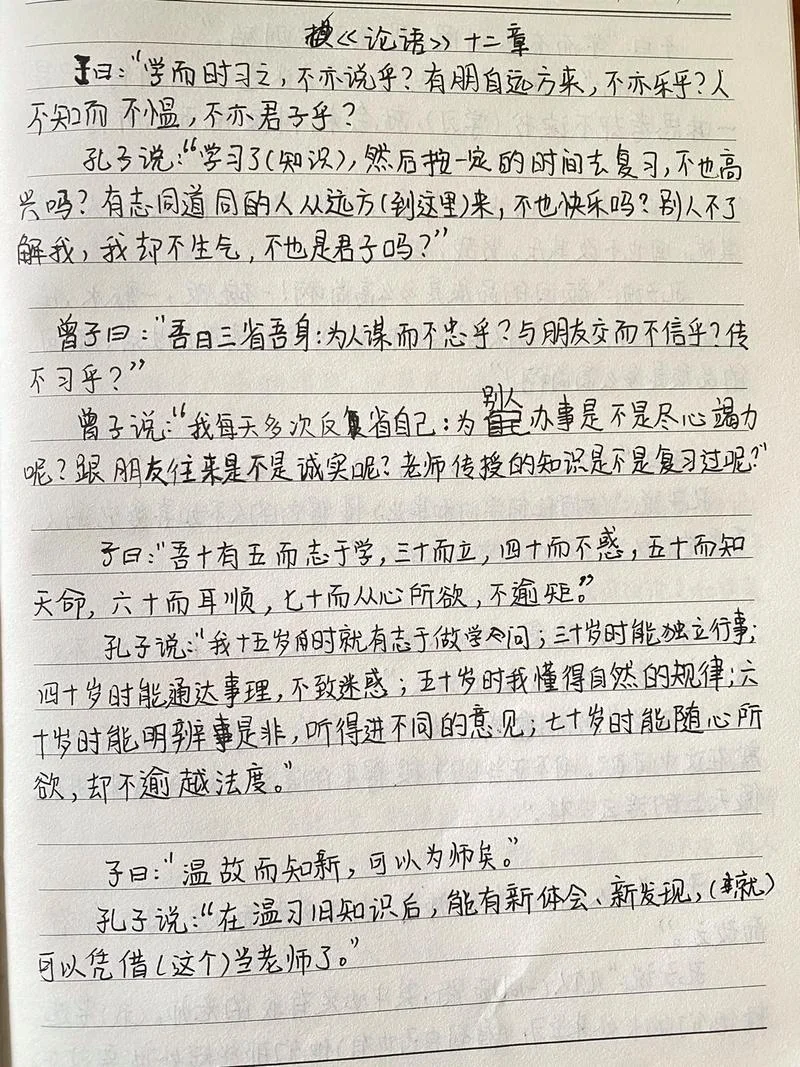 《论语》十二章
子曰：“学而时习之，不亦说乎？有朋自远方来，不亦乐乎？人
不知而不愠，不亦君子乎？
孔子说：“学习了（知识），然后按一定的时间去复习，不也高
兴吗？有志同道同的人从远方（到这里）来，不也快乐吗？别人不了
解我，我却不生气，不也是君子吗？”
曾子曰：“吾日三省吾身：为人谋而不忠乎？与朋友交而不信乎？传
不习乎？”
曾子说：“我每天多次反复省自己：为别人办事是不是尽心竭力
呢？跟朋友往来是不是诚实呢？老师传授的知识是不是复习过呢？”
子曰：“吾十有五而志于学，三十而立，四十而不惑，五十而知
天命，六十而耳顺，七十而从心所欲，不逾矩。”
孔子说：“我十五岁的时就有志于做学问；三十岁时能独立行事；
四十岁时能通达事理，不致迷惑；五十岁时我懂得自然的规律；六
十岁时能明辨事是非，听得进不同的意见；七十岁时能随心所
欲，却不逾越法度。”
子曰：“温故而知新，可以为师矣。”
孔子说：“在温习旧知识后，能有新体会、新发现，（就）
可以凭借（这个）当老师了。”